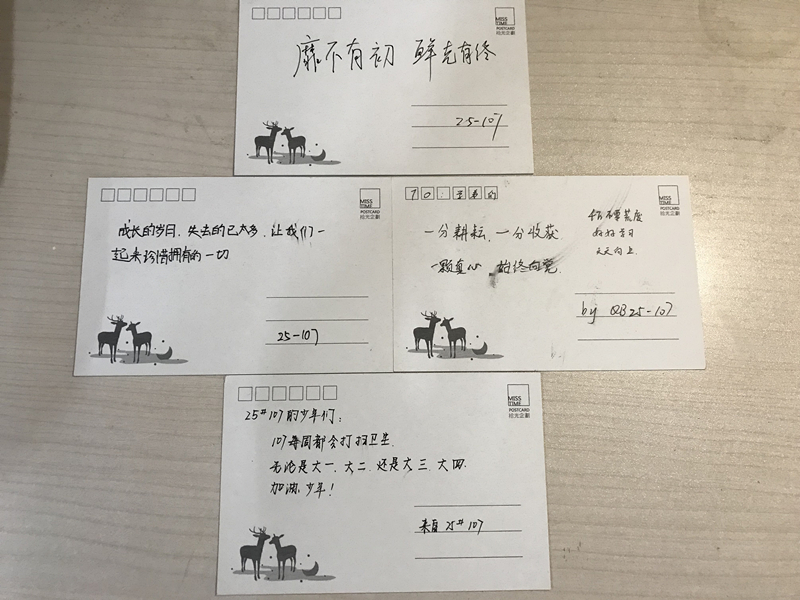 MISS
TIME
POSTCARD
拾光企劃
靡不有初 鲜克有终
25-107
MISS
TIME
POSTCARD
拾光企劃
成长的岁月，失去的已太多，让我们一
起来珍惜拥有的一切
25-107
TO:
MISS
TIME
POSTCARD
拾光企劃
荒废
好好学习
天天向上
一分耕耘，一分收获
一颗真心，始终向党.
by QB25-107
MISS
TIME
POSTCARD
拾光企劃
25#107的少年们：
107每周都会打扫卫生
无论是大一、大二、还是大三、大四
加油少年！
来自25#107